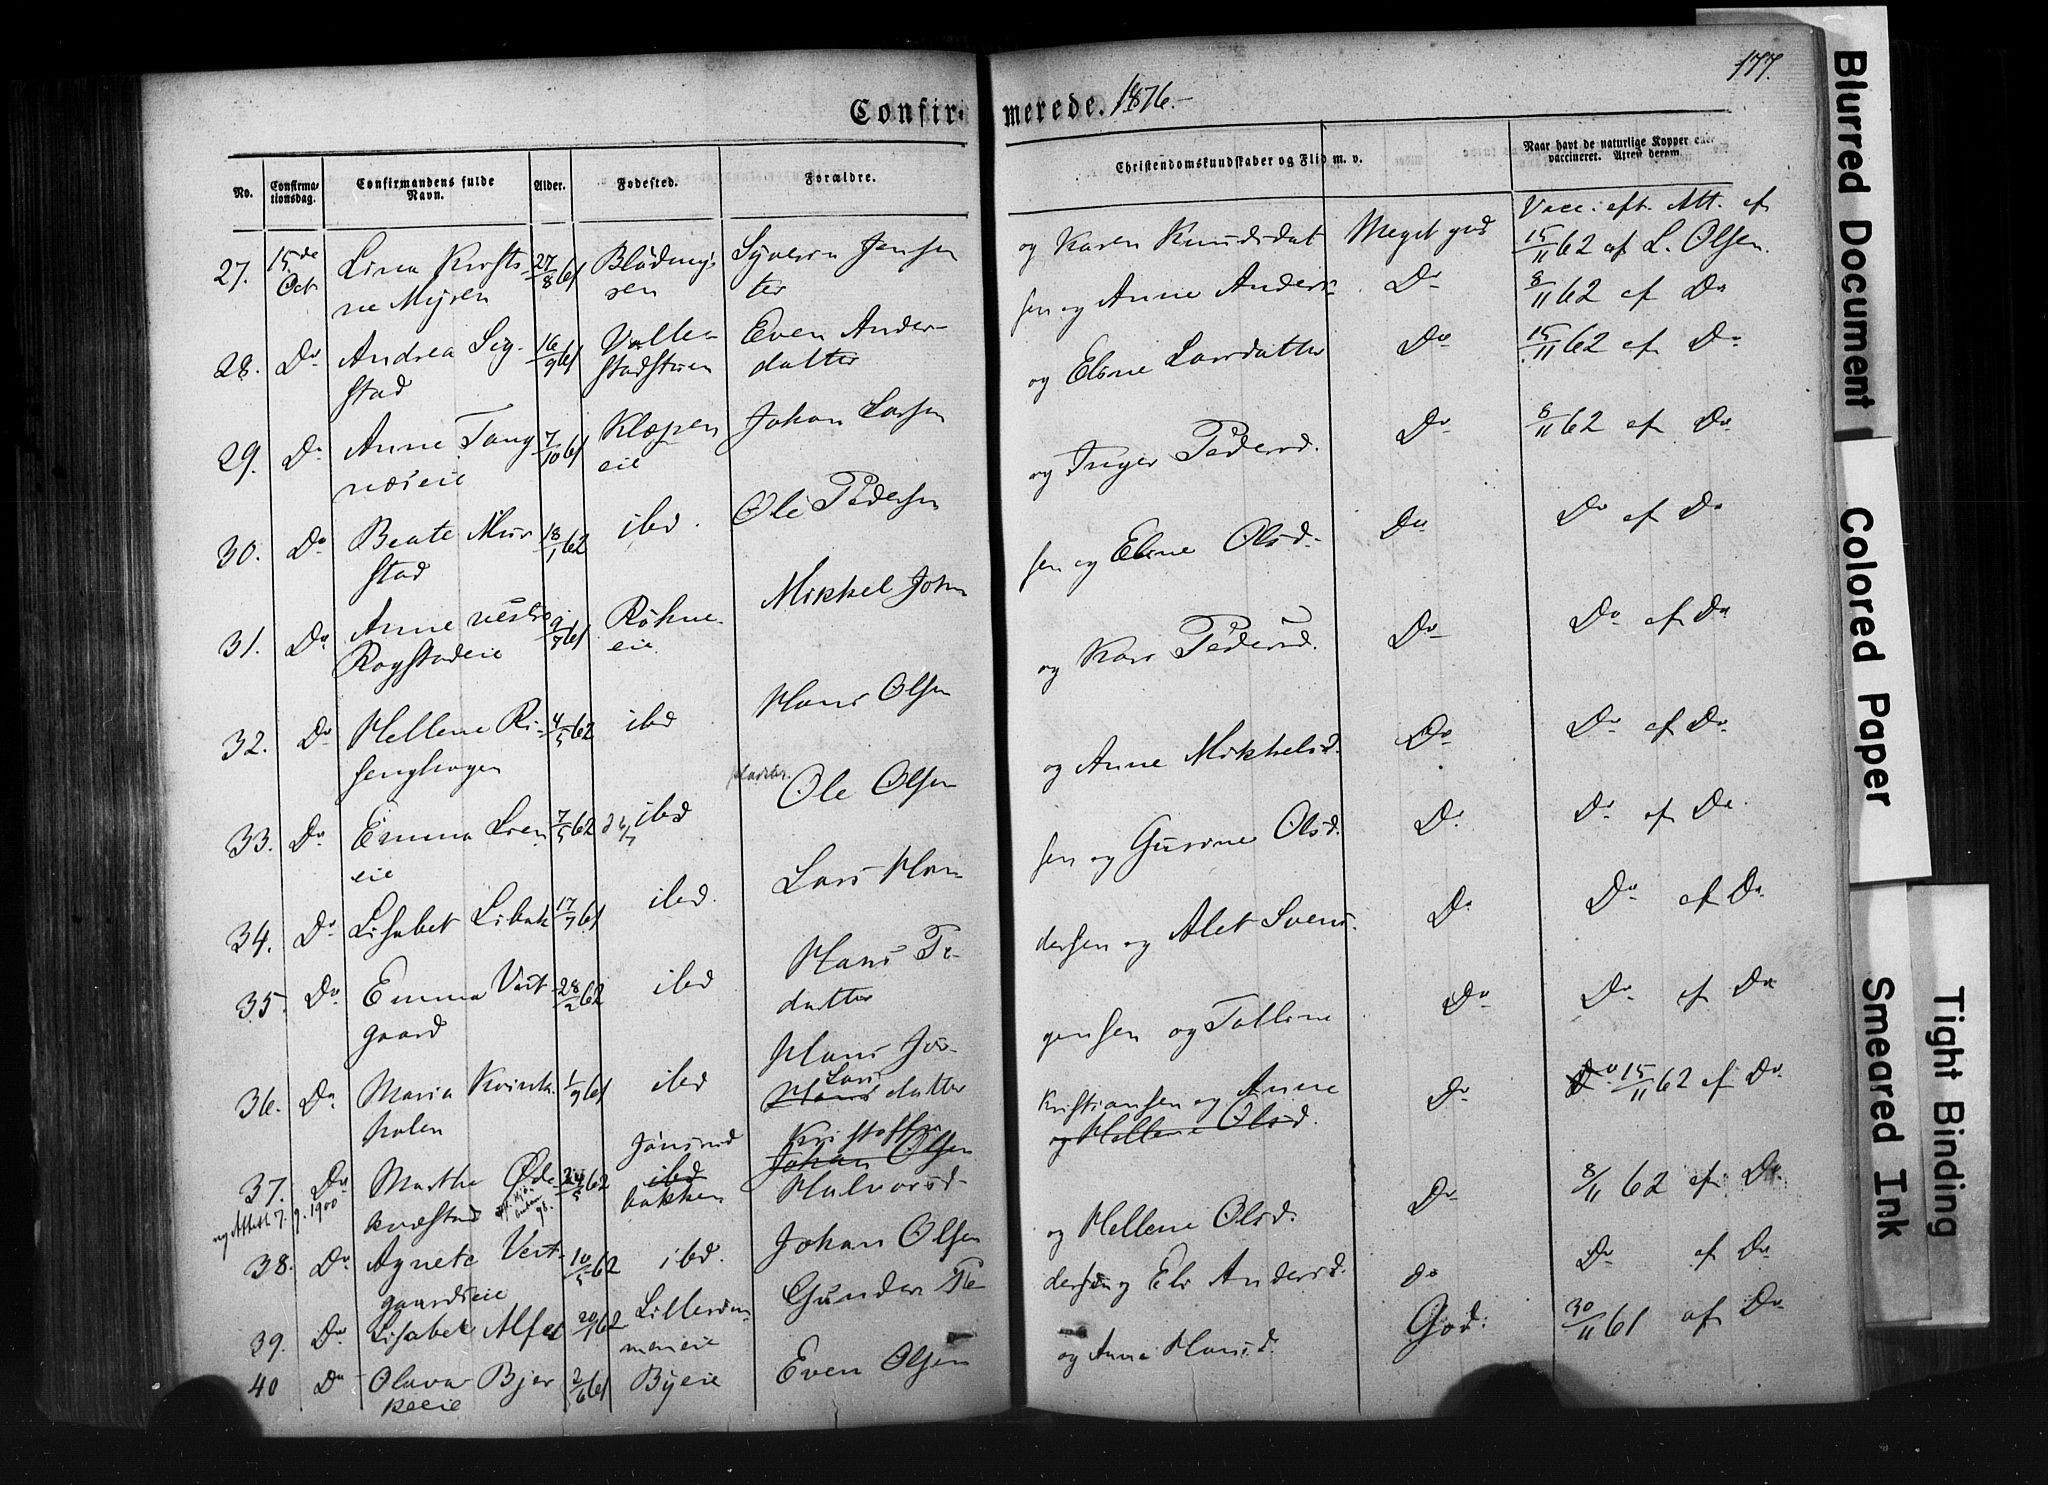 177.
Confirmerede. 1876.-
No.
Confirmationsdag.
Confirmandens fulde Navn.
Alder.
Fødested.
Forældre.
Christendomskundskaber og Flid m. v.
Naar havt de naturlige Kopper eller vaccineret. Attest derom.
Vacc. eft. Att. af
27. 15de Lina Kristi- 27/8 61 Syvern Jensen og Karen Knudsdat Meget god 15/11 62 af L. Olsen.
Oct ne Myren sen ter
28. Do Andrea Sig- 16/9 61 Even Ander- sen og Anne Anders- Do 8/11 62 af Do
stad datter
29. Do Anne Tang- 7/10 61 Klæpen Johan Larsen og Eline Larsdatter Do 15/11 62 af Do
næseie eie
30. Do Beate Mur- 18/1 62 ibd. Ole Pedersen og Inger Pedersd. Do 8/11 62 af Do
stad
31. Do Anne vestre 2/7 61 Røhne- Mikkel John sen og Eline Olsd. Do Do af Do
Rogstadeie eie
32. Do Hellene Ri- 4/5 62 ibd Hans Olsen og Kari Pedersd. Do Do af Do
senghagen
33. Do Emma Lien 7/5 62 ibd Ole Olsen og Anne Mikkelsd. Do Do af Do
eie
34. Do Lisabet Libak 17/7 61 ibd. Lars Han sen og Gurine Olsd. Do Do af Do
35. Do Emma Vest- 28/2 62 ibd Hans Pe- dersen og Alet Svens- Do Do af Do
gaard datter
36. Do Maria Kvink- 1/9 61 ibd Hans Jør- gensen og Talline Do Do af Do
holen Hans Lars datter
37. Do Marthe Øde- 24/5 62 Jønsrud Kristoffer Kristiansen og Anne Do Do 15/11 62 af Do
kvæstad ibd bakken Johan Olsen Halvorsd. og Hellene Olsd.
7/9. 1900
38. Do Agnete Vest- 10/5 62 ibd. Johan Olsen og Hellene Olsd. Do 8/11 62 af Do
gaardseie
39. Do Lisabet Alfst 20/1 62 Gunder Pe dersen og Eli Andersd. do Do af Do
meneie
40 Do Olava Bjer 2/6 61 Byeie Even Olsen og Anne Hansd. God. 30/11 61 af Do
keeie
Blurred Document
Colored Paper
Smeared Ink
Tight Binding